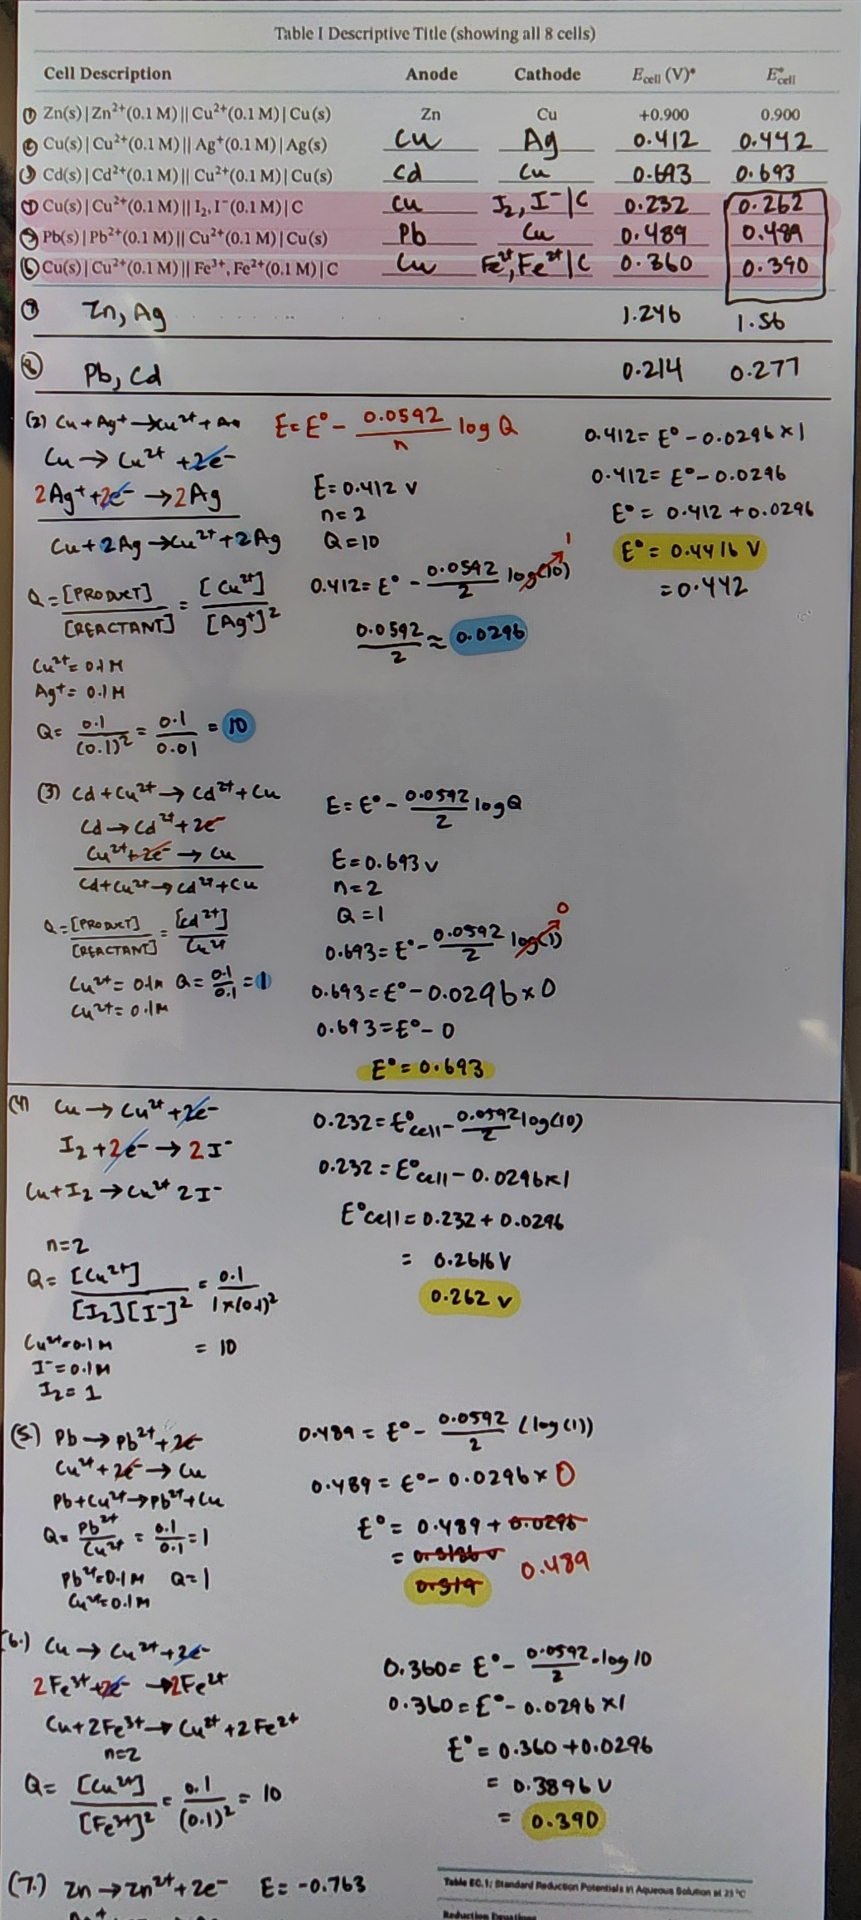 Table I Descriptive Title (showing all 8 cells)
Cell Description Anode Cathode Ecell (V)* E°cell
① Zn(s) | Zn²⁺(0.1 M) || Cu²⁺(0.1 M) | Cu(s) Zn Cu +0.900 0.900
② Cu(s) | Cu²⁺(0.1 M) || Ag⁺(0.1 M) | Ag(s) Cu Ag 0.412 0.442
③ Cd(s) | Cd²⁺(0.1 M) || Cu²⁺(0.1 M) | Cu(s) Cd Cu 0.693 0.693
④ Cu(s) | Cu²⁺(0.1 M) || I₂, I⁻(0.1 M) | C Cu I₂, I⁻|C 0.232 0.262
⑤ Pb(s) | Pb²⁺(0.1 M) || Cu²⁺(0.1 M) | Cu(s) Pb Cu 0.489 0.489
⑥ Cu(s) | Cu²⁺(0.1 M) || Fe³⁺, Fe²⁺(0.1 M) | C Cu Fe³⁺, Fe²⁺|C 0.360 0.390
⑦ Zn, Ag 1.246 1.56
⑧ Pb, Cd 0.214 0.277
(2) Cu + Ag⁺ → Cu²⁺ + Ag
Cu → Cu²⁺ + 2e⁻
2Ag⁺ + 2e⁻ → 2Ag
Cu + 2Ag → Cu²⁺ + 2Ag
Q = [PRODUCT]/[REACTANT] = [Cu²⁺]/[Ag⁺]²
Cu²⁺ = 0.1 M
Ag⁺ = 0.1 M
Q = 0.1/(0.1)² = 0.1/0.01 = 10
E = E° - 0.0592/n log Q
E = 0.412 V
n = 2
Q = 10
0.412 = E° - 0.0592/2 log(10) 1
0.0592/2 ≈ 0.0296
0.412 = E° - 0.0296 × 1
0.412 = E° - 0.0296
E° = 0.412 + 0.0296
E° = 0.4416 V
= 0.442
(3) Cd + Cu²⁺ → Cd²⁺ + Cu
Cd → Cd²⁺ + 2e⁻
Cu²⁺ + 2e⁻ → Cu
Cd + Cu²⁺ → Cd²⁺ + Cu
Q = [PRODUCT]/[REACTANT] = [Cd²⁺]/Cu²⁺
Cu²⁺ = 0.1M Q = 0.1/0.1 = 1
Cu²⁺ = 0.1M
E = E° - 0.0592/2 log Q
E = 0.693 V
n = 2
Q = 1
0.693 = E° - 0.0592/2 log(1) 0
0.693 = E° - 0.0296 × 0
0.693 = E° - 0
E° = 0.693
(4) Cu → Cu²⁺ + 2e⁻
I₂ + 2e⁻ → 2I⁻
Cu + I₂ → Cu²⁺ 2I⁻
n = 2
Q = [Cu²⁺]/[I₂][I⁻]² = 0.1/1×(0.1)²
Cu²⁺ = 0.1 M = 10
I⁻ = 0.1 M
I₂ = 1
0.232 = E°cell - 0.0592/2 log(10)
0.232 = E°cell - 0.0296 × 1
E°cell = 0.232 + 0.0296
= 0.2616 V
0.262 V
(5.) Pb → Pb²⁺ + 2e⁻
Cu²⁺ + 2e⁻ → Cu
Pb + Cu²⁺ → Pb²⁺ + Cu
Q = Pb²⁺/Cu²⁺ = 0.1/0.1 = 1
Pb²⁺ = 0.1 M Q = 1
Cu²⁺ = 0.1 M
0.489 = E° - 0.0592/2 (log(1))
0.489 = E° - 0.0296 × 0
E° = 0.489 + 0.0296
= 0.5186 V 0.489
0.519
(6.) Cu → Cu²⁺ + 2e⁻
2Fe³⁺ + 2e⁻ → 2Fe²⁺
Cu + 2Fe³⁺ → Cu²⁺ + 2Fe²⁺
n = 2
Q = [Cu²⁺]/[Fe³⁺]² = 0.1/(0.1)² = 10
0.360 = E° - 0.0592/2 · log 10
0.360 = E° - 0.0296 × 1
E° = 0.360 + 0.0296
= 0.3896 V
= 0.390
(7.) Zn → Zn²⁺ + 2e⁻ E = -0.763
Table EC.1: Standard Reduction Potentials in Aqueous Solution at 25 °C
Reduction Equations